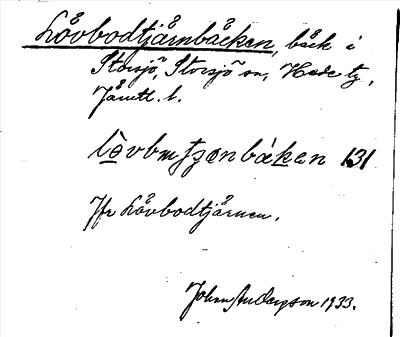 Lövbodtjärnbäcken, bäck i
Storsjö, Storsjö sn, Hede tg,
Jämtl. l.
131
Jfr Lövbodtjärnen.
Johan Anderson 1933.